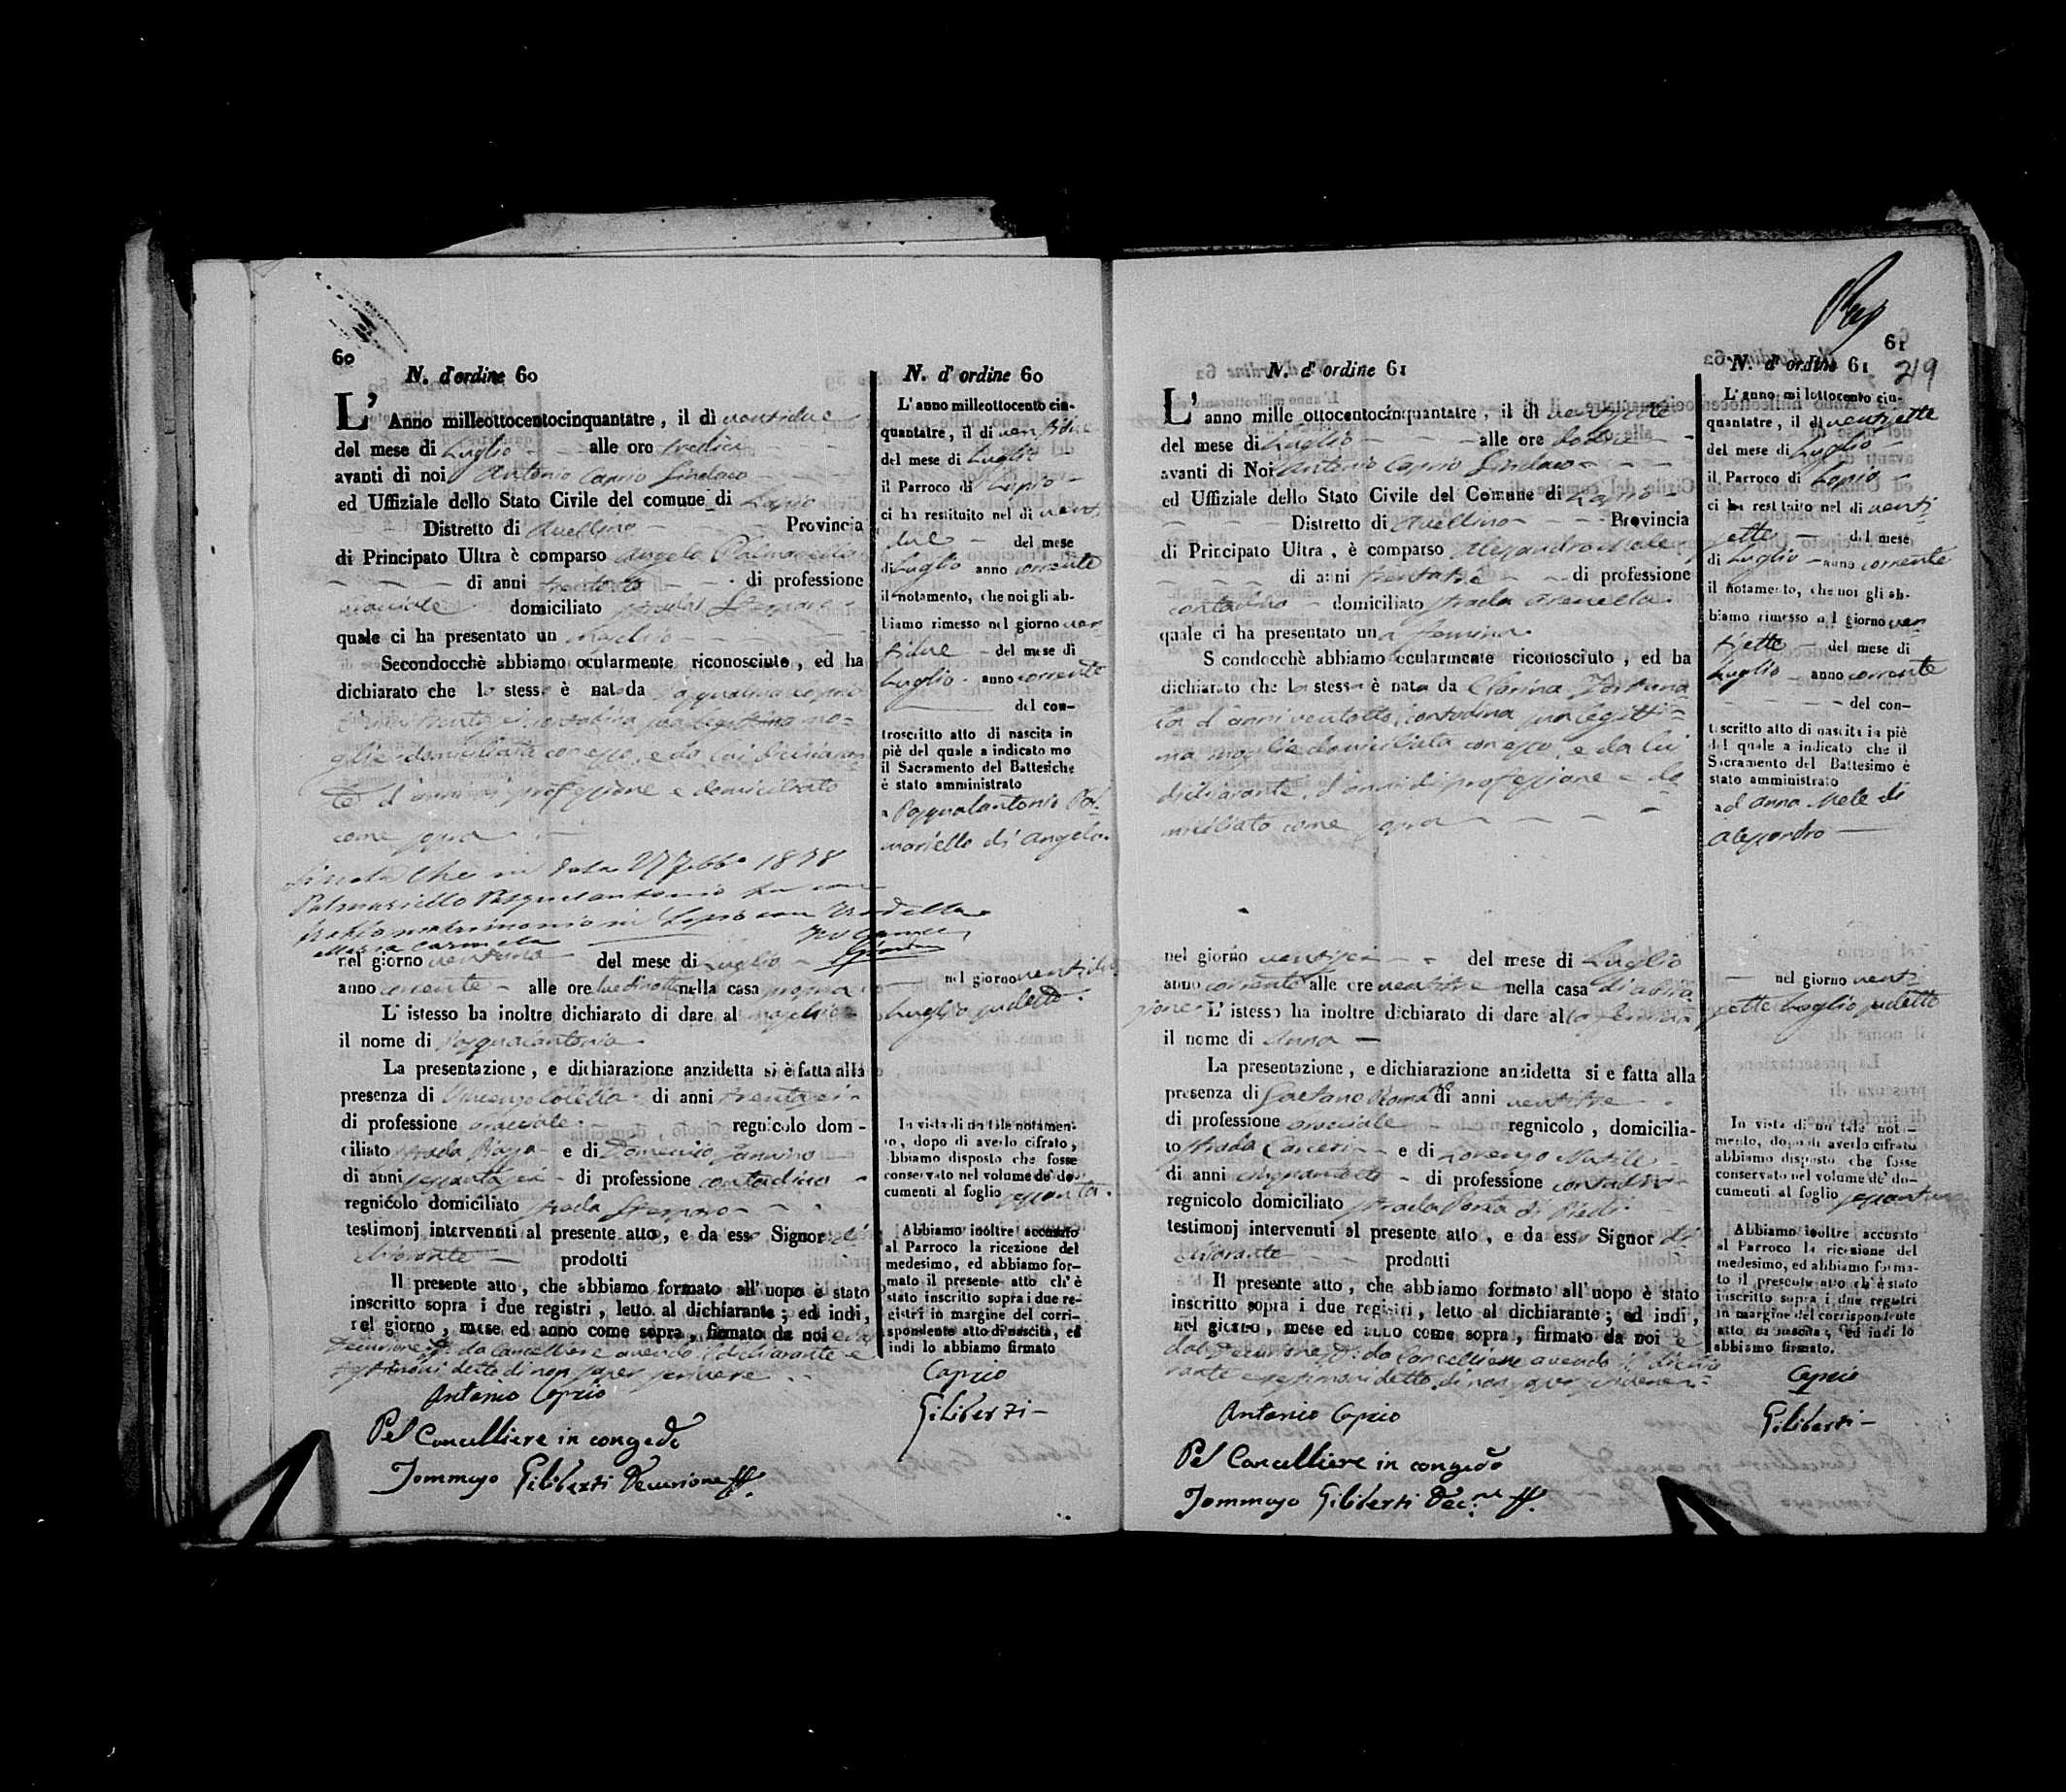 60
N. d'ordine 60
L'Anno milleottocentocinquantatre, il dì ventidue
del mese di Luglio alle ore tredici
avanti di noi Antonio Caprio Sindaco
ed Uffiziale dello Stato Civile del comune di Lapio
Distretto di Avellino Provincia
di Principato Ultra è comparso Angelo Palmariello
di anni trentotto di professione
bracciale domiciliato strada
quale ci ha presentato un maschio
Secondocchè abbiamo ocularmente riconosciuto, ed ha
dichiarato che lo stesso è nato da Pasqualina
contadina sua legittima mo-
glie domiciliata con esso, e da lui dichiaran-
te d'anni professione e domiciliato
come sopra
che in data 27 Febb° 1878
Palmariello Pasqualantonio ha con
matrimonio in Lapio con
Maria Carmela
nel giorno ventuno del mese di Luglio
anno corrente alle ore nella casa propria
L'istesso ha inoltre dichiarato di dare al maschio
il nome di Pasqualantonio
La presentazione, e dichiarazione anzidetta si è fatta alla
presenza di Vincenzo di anni trentasei
di professione bracciale regnicolo domi-
ciliato strada e di Domenico
di anni sessantasei di professione contadino
regnicolo domiciliato strada
testimonj intervenuti al presente atto, e da esso Signor di-
chiarante prodotti
Il presente atto, che abbiamo formato all'uopo è stato
inscritto sopra i due registri, letto al dichiarante; ed indi,
nel giorno, mese ed anno come sopra, firmato da noi e dal
Decurione ff. da Cancelliere avendo il dichiarante e
testimoni detto di non saper scrivere
Antonio Caprio
Pel Cancelliere in congedo
Tommaso Giliberti Decurione ff.
N. d'ordine 60
L'anno milleottocento cin-
quantatre, il dì ventidue
del mese di Luglio
il Parroco di Lapio
ci ha restituito nel dì venti
due del mese
di Luglio anno corrente
il notamento, che noi gli ab-
biamo rimesso nel giorno ven
tidue del mese di
Luglio anno corrente
del con-
troscritto atto di nascita in
piè del quale a indicato mo
il Sacramento del Battesiche
è stato amministrato
a Pasqualantonio Pal-
mariello di Angelo
nel giorno ventidue
Luglio sudetto
In vista di un tale notamen-
to, dopo di averlo cifrato,
abbiamo disposto che fosse
conservato nel volume de' do-
cumenti al foglio sessanta
Abbiamo inoltre accusato
al Parroco la ricezione del
medesimo, ed abbiamo for-
mato il presente atto ch'è
stato inscritto sopra i due re-
gistri in margine del corri-
spondente atto di nascita, ed
indi lo abbiamo firmato
Caprio
Giliberti
61
219
N. d'ordine 61
L'anno mille ottocentocinquantatre, il dì ventisette
del mese di Luglio alle ore dodici
avanti di Noi Antonio Caprio Sindaco
ed Uffiziale dello Stato Civile del Comune di Lapio
Distretto di Avellino Provincia
di Principato Ultra, è comparso Alessandro Mele
di anni trentatrè di professione
contadino domiciliato strada Arenella
quale ci ha presentato una femina
Secondocchè abbiamo ocularmente riconosciuto, ed ha
dichiarato che la stessa è nata da Clorina
d'anni ventotto, contadina sua legitti-
ma moglie domiciliata con esso, e da lui
dichiarante, d'anni di professione e do-
miciliato come sopra
nel giorno ventisei del mese di Luglio
anno corrente alle ore ventitre nella casa di abita
zione L'istesso ha inoltre dichiarato di dare alla femina
il nome di Anna
La presentazione, e dichiarazione anzidetta si e fatta alla
presenza di Gaetano Romano di anni ventitre
di professione bracciale regnicolo, domicilia-
to strada Carceri e di Lorenzo
di anni cinquantotto di professione contadino
regnicolo domiciliato strada Porta di Piedi
testimonj intervenuti al presente atto, e da esso Signor di-
chiarante prodotti
Il presente atto, che abbiamo formato all'uopo è stato
inscritto sopra i due registri, letto al dichiarante; ed indi,
nel giorno, mese ed anno come sopra, firmato da noi e
dal Decurione ff. da Cancelliere avendo il dichia
rante e testimoni detto di non saper scrivere
Antonio Caprio
Pel Cancelliere in congedo
Tommaso Giliberti Dec.ne ff.
N. d'ordine 61
L'anno millottocento cin-
quantatre, il dì ventisette
del mese di Luglio
il Parroco di Lapio
ci ha restituito nel dì venti
sette del mese
di Luglio anno corrente
il notamento, che noi gli ab-
biamo rimesso nel giorno ven
tisette del mese di
Luglio anno corrente
del con-
troscritto atto di nascita in piè
del quale a indicato che il
Sacramento del Battesimo è
stato amministrato
ad Anna Mele di
Alessandro
nel giorno venti
sette Luglio sudetto
In vista di un tale nota-
mento, dopo di averlo cifrato
abbiamo disposto che fosse
conservato nel volume de' do-
cumenti al foglio sessantuno
Abbiamo inoltre accusato
al Parroco la ricezione del
medesimo, ed abbiamo forma-
to il presente atto ch'è stato
inscritto sopra i due registri
in margine del corrispondente
atto di nascita, ed indi lo
abbiamo firmato.
Caprio
Giliberti